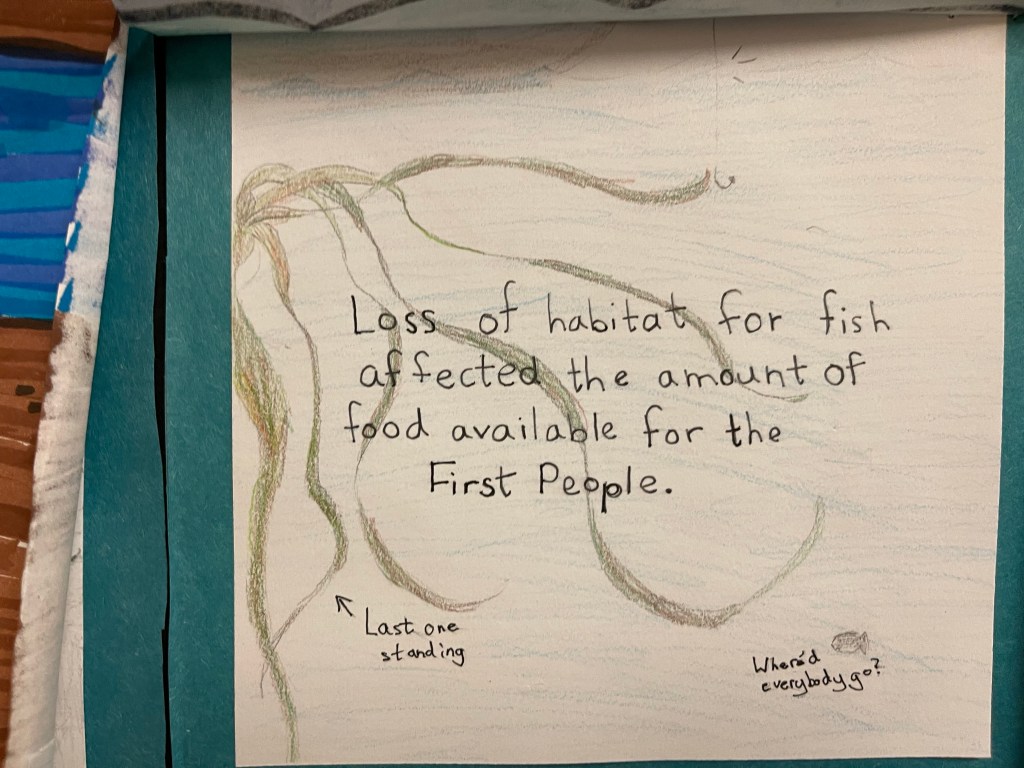 Loss of habitat for fish
affected the amount of
food available for the
First People.
Last one
standing
Where'd
everybody go?